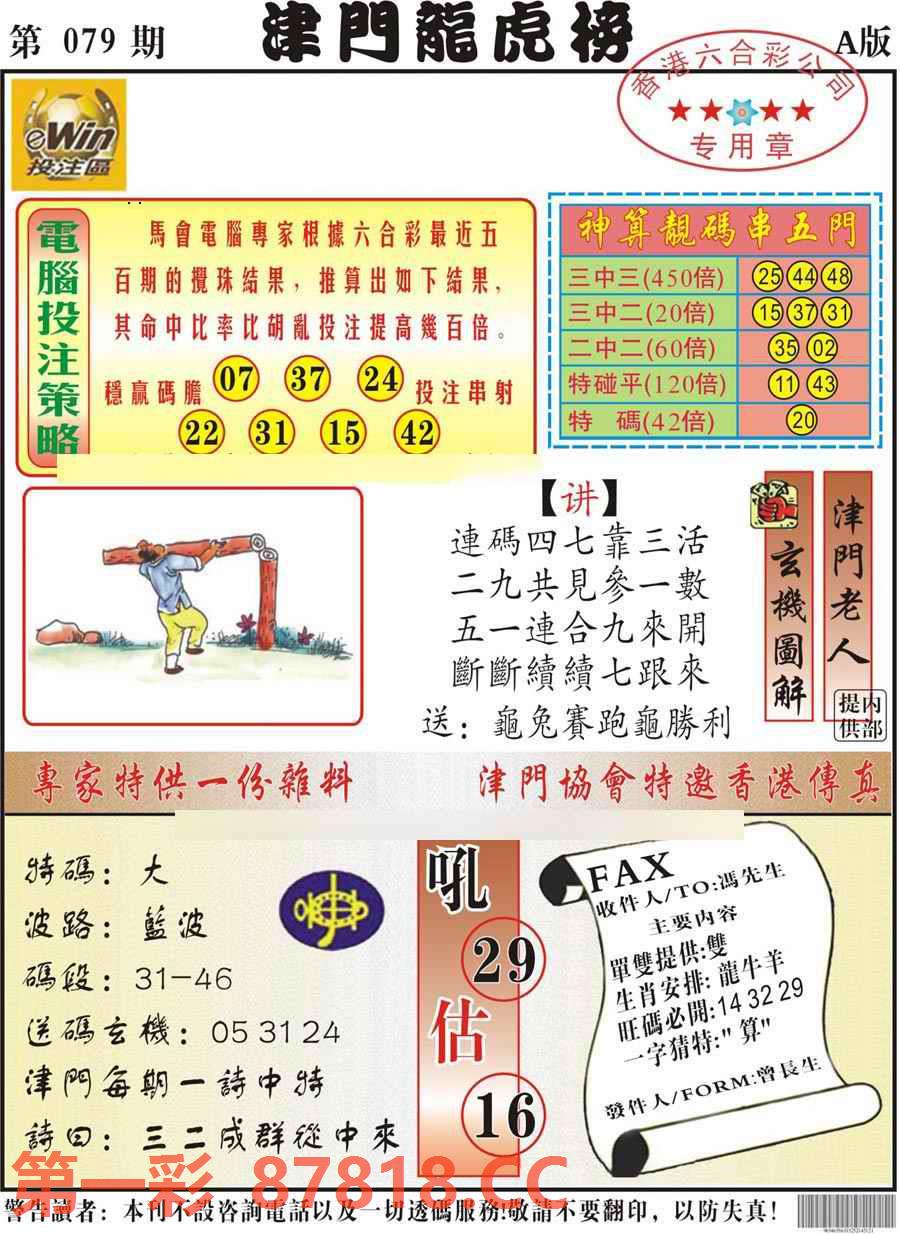 第 079 期
津門龍虎榜
A版
香港六合彩公司
专用章
eWin
投注區
電腦投注策略
馬會電腦專家根據六合彩最近五
百期的攪珠結果，推算出如下結果，
其命中比率比胡亂投注提高幾百倍。
穩贏碼膽 07 37 24 投注串射
22 31 15 42
神算靚碼串五門
三中三(450倍) 25 44 48
三中二(20倍) 15 37 31
二中二(60倍) 35 02
特碰平(120倍) 11 43
特 碼(42倍) 20
【讲】
連碼四七靠三活
二九共見參一數
五一連合九來開
斷斷續續七跟來
送：龜兔賽跑龜勝利
玄機圖解
津門老人
提供
内部
專家特供一份雜料
津門協會特邀香港傳真
特碼：大
波路：藍波
碼段：31-46
送碼玄機：05 31 24
津門每期一詩中特
詩曰：三二成群從中來
吼
29
估
16
FAX
收件人/TO:馮先生
主要内容
單雙提供:雙
生肖安排: 龍牛羊
旺碼必開:14 32 29
一字猜特:"算"
發件人/FORM:曾長生
第一彩 87818.CC
警告讀者：本刊不設咨詢電話以及一切透碼服務!敬請不要翻印，以防失真!